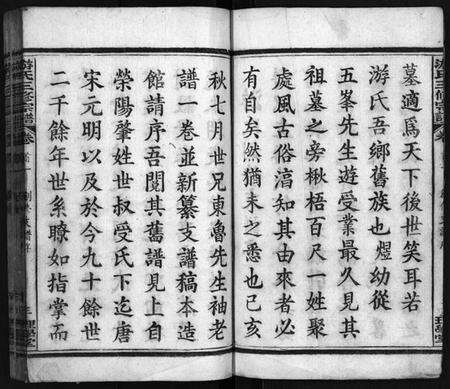 墓適爲天下後世笑耳若
游氏吾鄉舊族也煜幼從
五峯先生遊受業最久見其
祖墓之旁楸梧百尺一姓聚
處風古俗湻知其由來者必
有自矣然猶未之悉也己亥
秋七月世兄東魯先生袖老
譜一卷並新纂支譜稿本造
館請序吾閱其舊譜見上自
榮陽肇姓世叔受氏下迄唐
宋元明以及於今九十餘世
二千餘年世系瞭如指掌而
游氏三修宗譜